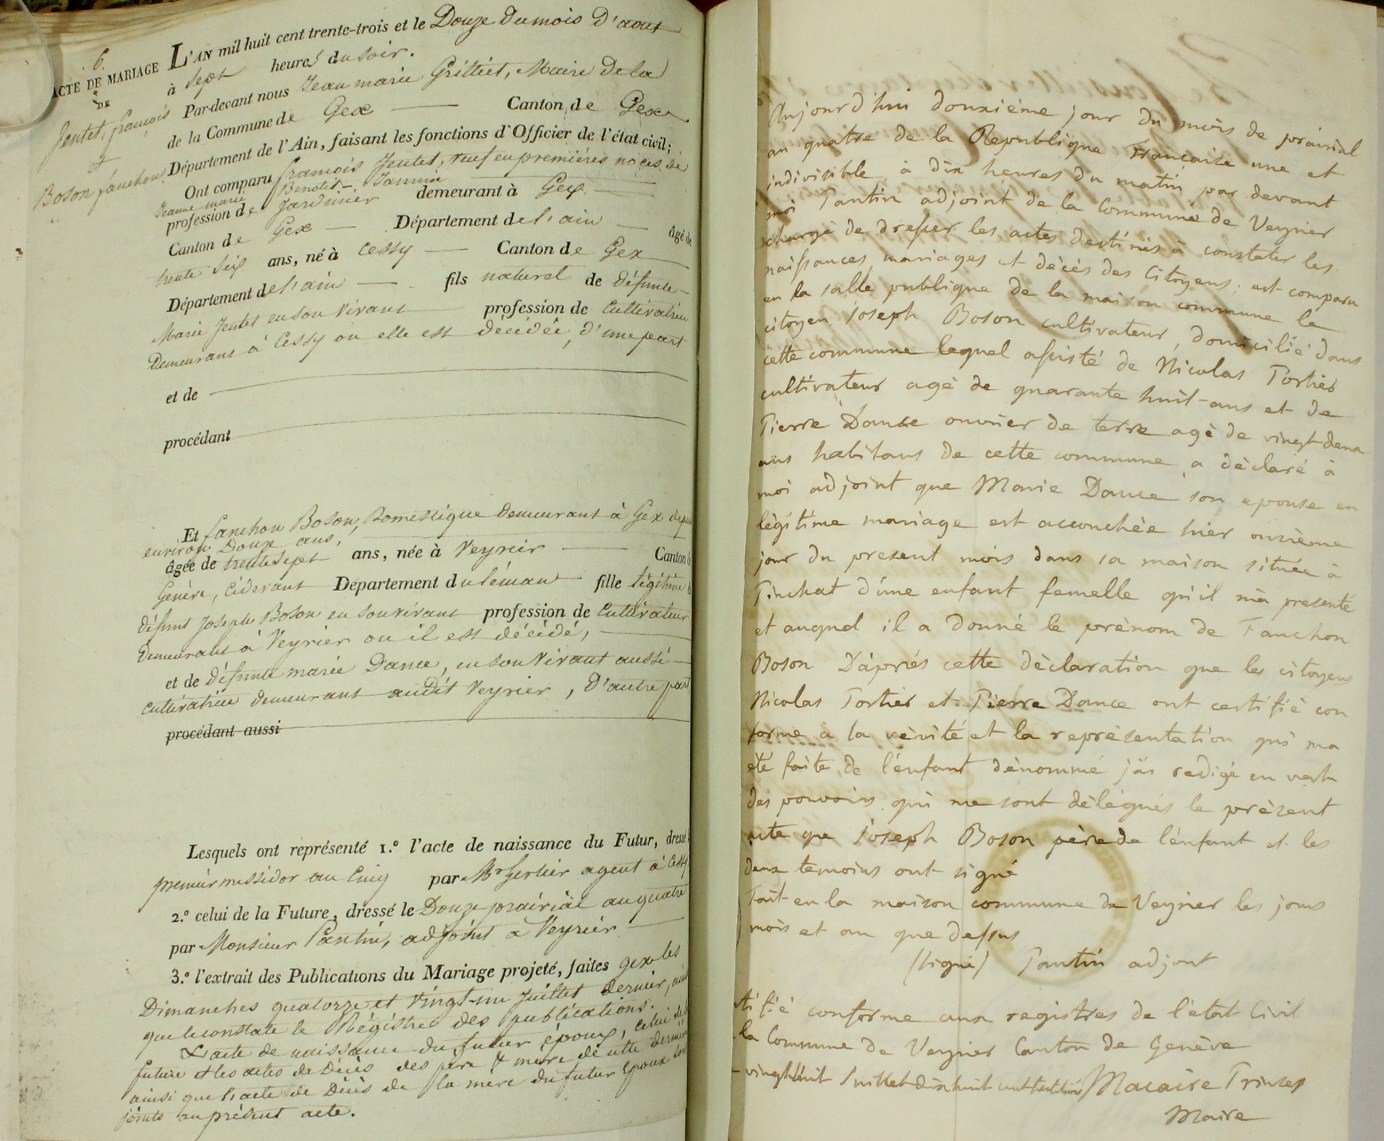 6.
ACTE DE MARIAGE
DE
Jentet, françois
et
Boson fanchon
L'AN mil huit cent trente-trois et le Douze du mois d'aout
à sept heures du soir.
Par-devant nous Jean marie Grilliet, Maire de la
de la Commune de Gex Canton de Gex
Département de l'Ain, faisant les fonctions d'Officier de l'état civil;
Ont comparu françois Jentet, veuf en premières noces de
Jeanne marie Benoite Jannin
profession de Jardinier demeurant à Gex
Canton de Gex Département de l'ain âgé de
trente Six ans, né à Cessy Canton de Gex
Département de l'ain fils naturel de défunte
Marie Jentet en son vivant profession de Cultivatrice
Demeurant à Cessy ou elle est décédée, d'une part
et de
procédant
Et fanchon Boson, Domestique demeurant à Gex depuis
environ Douze ans,
âgée de trente sept ans, née à Veyrier Canton de
Genève, Cidevant Département du Léman fille légitime de
défunt Joseph Boson en son vivant profession de Cultivateur
Demeurant à Veyrier ou il est décédé,
et de défunte marie Dance, en son vivant aussi
cultivatrice demeurant audit Veyrier, d'autre part
procédant aussi
Lesquels ont représenté 1.º l'acte de naissance du Futur, dressé le
premier messidor an Cinq par Mr Gerlier agent à Cessy
2.º celui de la Future, dressé le Douze prairial an quatre
par Monsieur Pantin, adjoint à Veyrier
3.º l'extrait des Publications du Mariage projeté, faites à gex les
Dimanches quatorze et vingt-un Juillet dernier, ainsi
que le constate le Régistre des publications.
L'acte de naissance du futur époux, celui de la
future et les actes de Décès des père & mère de cette dernière
ainsi que l'acte de Décès de la mère du futur époux sont
joints au présent acte.
Aujourd'hui douxième jour du mois de prairial
an quatre de la République Francaise une et
indivisible, à dix heures du matin par devant
moi Pantin adjoint de la Commune de Veyrier
chargé de dresser les actes destinés à constater les
naissances mariages et décès des Citoyens; est comparu
en la salle publique de la maison commune le
citoyen Joseph Boson cultivateur, domicilié dans
cette commune lequel assisté de Nicolas Tortier
cultivateur agé de quarante huit-ans et de
Pierre Dance ouvrier de terre agé de vingt deux
ans habitans de cette commune a déclaré à
moi adjoint que Marie Dance son epouse en
légitime mariage est accouchée hier onzième
jour du present mois dans sa maison située à
Pinchat d'une enfant femelle qu'il m'a presenté
et auquel il a donné le prénom de Fanchon
Boson D'après cette déclaration que les citoyens
Nicolas Tortier et Pierre Dance ont certifié con
forme a la vérité et la représentation qui ma
été faite de l'enfant dénommé j'ai redigé en vertu
des pouvoirs qui me sont délégués le présent
acte que Joseph Boson père de l'enfant et les
deux temoins ont signé
Fait en la maison commune de Veyrier les jour
mois et an que dessus
(signé) Pantin adjoint
tifié conforme aux registres de l'état Civil
la Commune de Veyrier Canton de Genève
vingt huit Juillet dix huit cent trente trois Macaire Prinsep
Maire